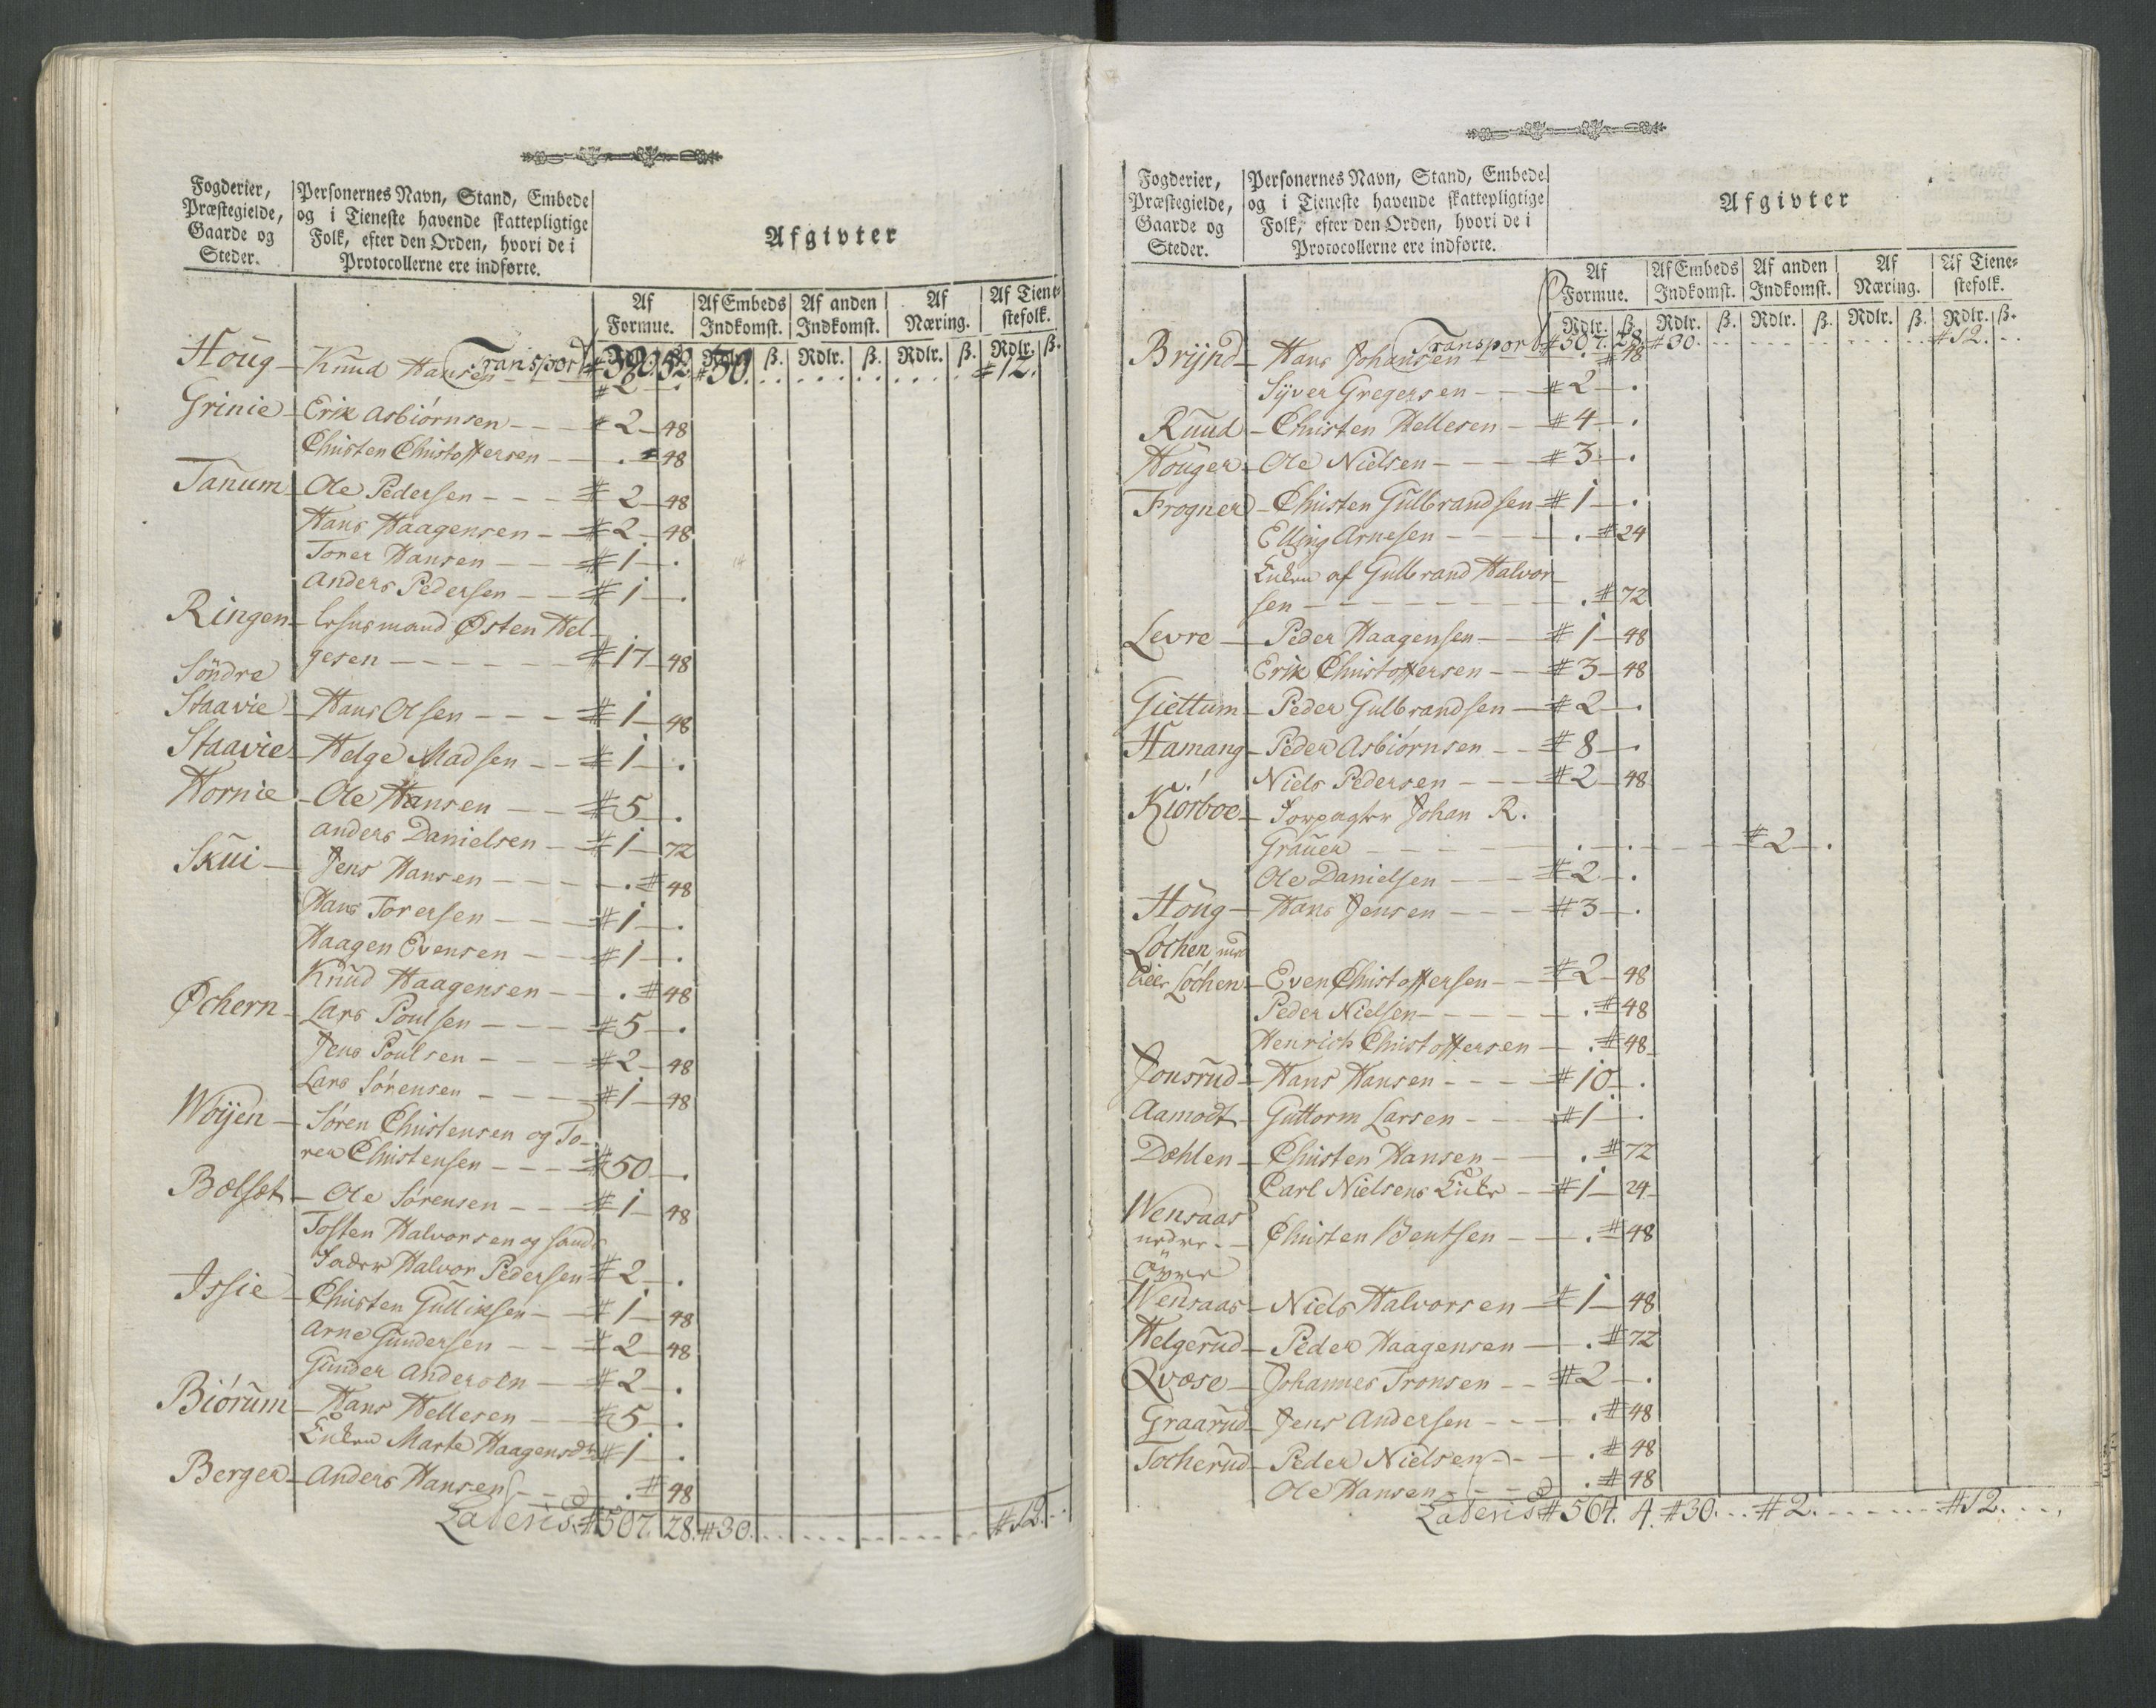 Fogderier, Præstegielde, Gaarde og Steder.
Personernes Navn, Stand, Embede og i Tieneste havende skattepligtige Folk, efter den Orden, hvori de i Protocollerne ere indførte.
Afgivter
Af Formue. Af Embeds Indkomst. Af anden Indkomst. Af Næring. Af Tienestefolk.
Rdlr. ß. Rdlr. ß. Rdlr. ß. Rdlr. ß.
Transport # 390 52 # 30. # 12.
Houg - Knud Hansen # 2 - .
Grinie - Erik Asbiørnsen - - - # 2 - 48
Christen Christoffersen - - . # 48
Tanum - Ole Pedersen - - - # 2 - 48
Hans Haagensen - # 2 - 48
Torer Hansen - - # 1 - .
Anders Pedersen - - # 1 - .
Ringen - Lehnsmand Østen Hel-
gesen - - - - - # 17 - 48
Söndre
Staavie - Hans Olsen - - - # 1 - 48
Staavie - Helge Madsen - - # 1 - .
Hornie - Ole Hansen - - # 5 - .
Anders Danielsen - # 1 - 72
Skui - Jens Hansen - - - . # 48
Hans Torersen - - # 1 - .
Haagen Evensen - - # 1 - .
Knud Haagensen - - . # 48
Øchern - Lars Poulsen - - - # 5 - .
Jens Poulsen - - - # 2 - 48
Lars Sørensen - - - # 1 - 48
Wöijen - Søren Christensen og To-
rer Christensen - - - # 50 - .
Bælset - Ole Sørensen - - - # 1 - 48
Tosten Halvorsen og hands
Fader Halvor Pedersen # 2 - .
Issie - Christen Gulliksen - - # 1 - 48
Arne Gundersen - - # 2 - 48
Gunder Andersen - # 2 - .
Biörum - Hans Hellesen - - # 5 - .
Enken Marte Haagensdr # 1 - .
Berger - Anders Hansen - - . # 48
Lateris # 507. 28. # 30. # 12.
Fogderier, Præstegielde, Gaarde og Steder.
Personernes Navn, Stand, Embede og i Tieneste havende skattepligtige Folk, efter den Orden, hvori de i Protocollerne ere indførte.
Afgivter
Af Formue. Af Embeds Indkomst. Af anden Indkomst. Af Næring. Af Tienestefolk.
Rdlr. ß. Rdlr. ß. Rdlr. ß. Rdlr. ß. Rdlr. ß.
Transport # 507. 28. # 30. # 12.
Brijnd - Hans Johansen - . # 48
Syver Gregersen - - # 2 - .
Ruud - Christen Hellesen - # 4 - .
Houger - Ole Nielsen - - - # 3 - .
Frogner - Christen Gulbrandsen # 1 - .
Elling Arnesen - - - . # 24
Enken af Gulbrand Halvor-
sen - - - - - . # 72
Levre - Peder Haagensen - - # 1 - 48
Erik Christoffersen - - # 3 - 48
Giettum - Peder Gulbrandsen - # 2 - .
Hamang - Peder Asbiørnsen - - # 8 - .
Niels Pedersen - - - # 2 - 48
Kiörboe - Forpagter Johan R.
Grauer - - - . . # 2 - .
Ole Danielsen - - # 2 - .
Houg - Hans Jensen - - - # 3 - .
Lochen med
Eier Lochen - Even Christoffersen - - # 2 - 48
Peder Nielsen - - - . # 48
Henrich Christoffersen - . # 48
Jonsrud - Hans Hansen - - - # 10 - .
Aamodt - Guttorm Larsen - - # 1 - .
Dæhlen - Christen Hansen - - . # 72
Carl Nielsens Enke - # 1 - 24
Wensaas
nedre - - Christen Bentsen - - . # 48
Öwre
Wensaas - Niels Halvorsen - # 1 - 48
Helgerud - Peder Haagensen - . # 72
Qvæse - Johannes Tronsen - - # 2 - .
Graarud - Jens Andersen - - . # 48
Tocherud - Peder Nielsen - - . # 48
Ole Hansen - - . # 48
Lateris # 564. 4. # 30. # 2. # 12.